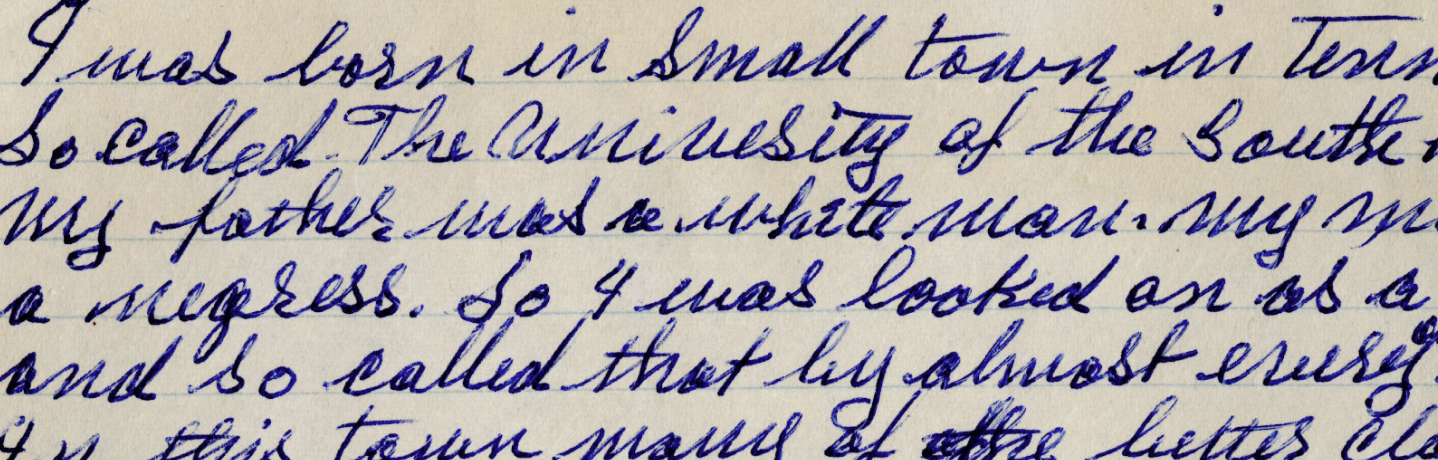 I was born in Small town in Tenn
So called The Univesity of the South
my father was a white man. my m
a negress. So I was looked on as a
and so called that by almost every
In this town many of the better cla